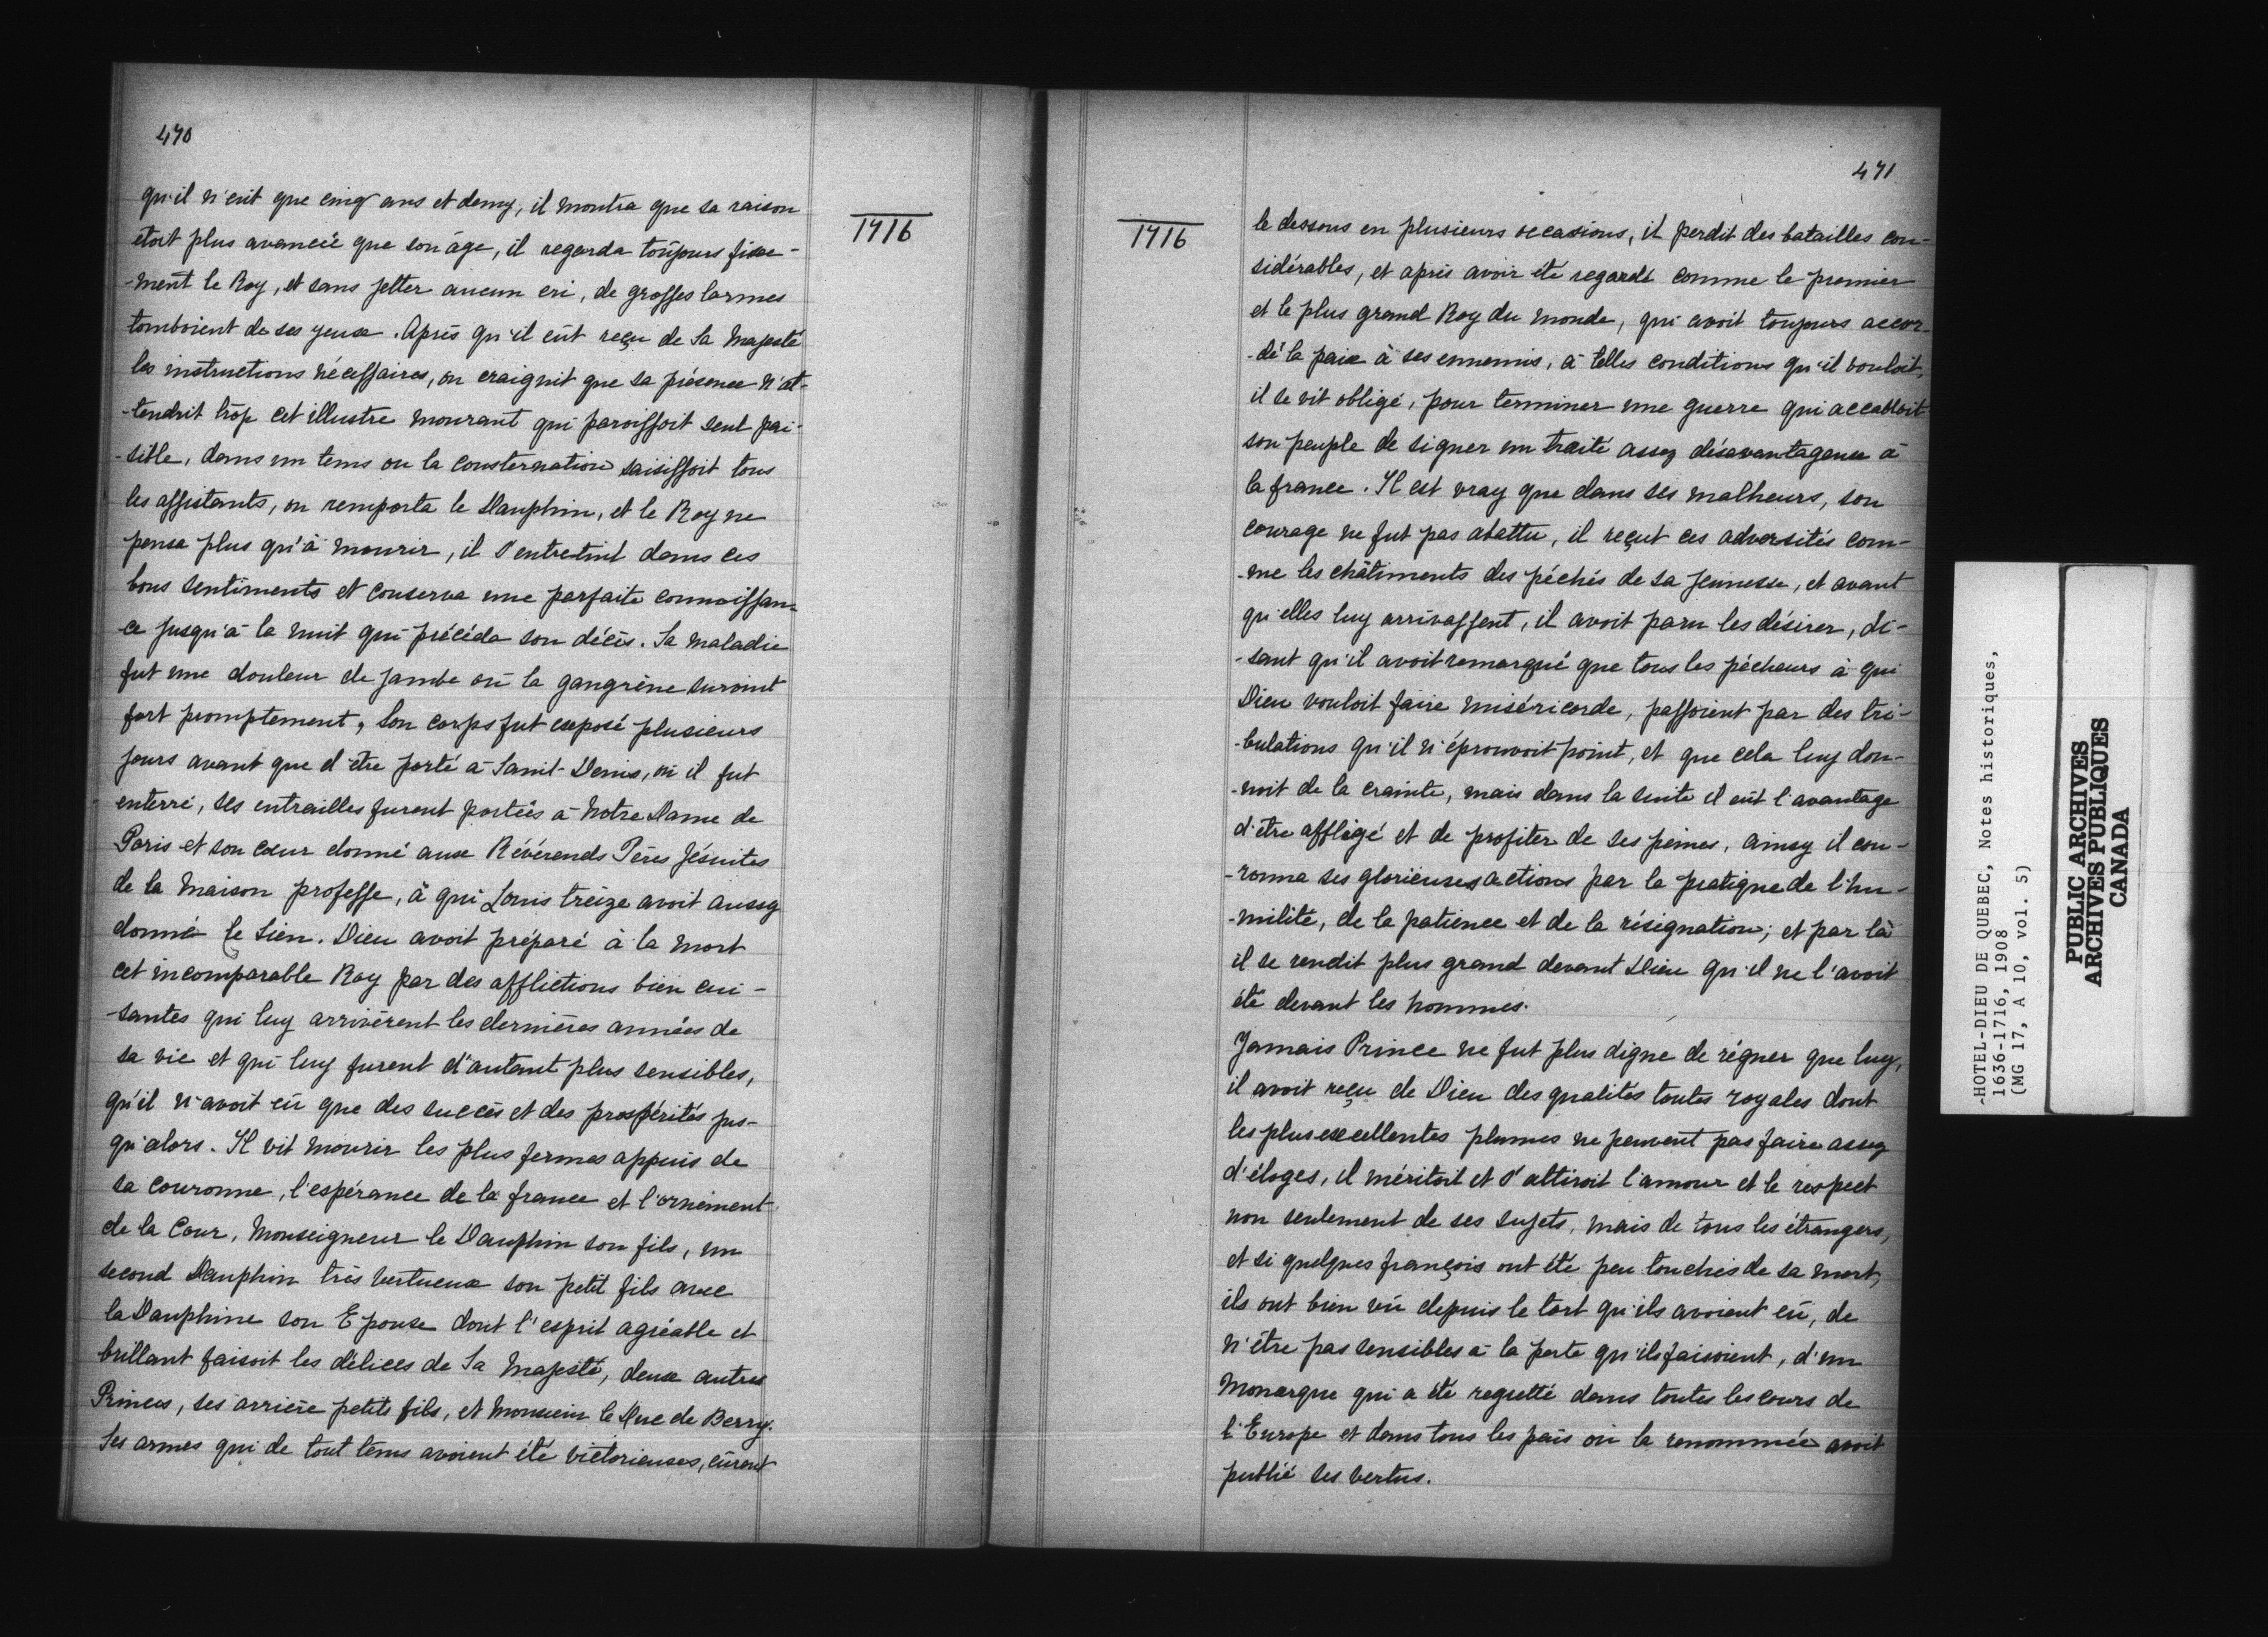 470
qu'il n'eut que cinq ans et demy, il montra que sa raison
étoit plus avancée que son âge, il regarda toûjours fixe-
-ment le Roy, et sans jetter aucun cri, de grosses larmes
tomboient de ses yeux. Après qu'il eût reçu de Sa Majesté
les instructions nécessaires, on craignit que sa présence n'at-
-tendrit trop cet illustre mourant qui paroissoit seul pai-
-sible, dans un tems ou la consternation saisissoit tous
les assistants, on remporta le Dauphin, et le Roy ne
pensa plus qu'à mourir, il s'entretint dans ces
bons sentiments et conserva une parfaite connoissan-
ce jusqu'à la nuit qui précéda son décès. Sa maladie
fut une douleur de jambe où la gangrène survint
fort promptement, Son corps fut exposé plusieurs
jours avant que d'être porté à Saint-Denis, où il fut
enterré, ses entrailles furent portées à Notre Dame de
Paris et son cœur donné aux Révérends Pères Jésuites
de la Maison professe, à qui Louis treize avoit aussy
donné le Sien. Dieu avoit préparé à la mort
cet incomparable Roy par des afflictions bien cui-
-santes qui luy arrivèrent les dernières années de
sa vie et qui luy furent d'autant plus sensibles,
qu'il n'avoit eû que des succès et des prospérités jus-
qu'alors. Il vit mourir les plus fermes appuis de
sa couronne, l'espérance de la france et l'ornement
de la Cour, Monseigneur le Dauphin son fils, un
second Dauphin très vertueux son petit fils avec
la Dauphine son Epouse dont l'esprit agréable et
brillant faisoit les délices de Sa Majesté, deux autres
Princes, ses arrière petits fils, et Monsieur le Duc de Berry.
Ses armes qui de tout tems avoient été victorieuses, eûrent
1716
471
1716
le dessous en plusieurs occasions, il perdit des batailles con-
sidérables, et après avoir été regardé comme le premier
et le plus grand Roy du monde, qui avoit toujours accor-
-dé la paix à ses ennemis, à telles conditions qu'il vouloit,
il se vit obligé, pour terminer une guerre qui accabloit
son peuple de signer un traité assez désavantageux à
la france. Il est vray que dans ses malheurs, son
courage ne fut pas abattu, il reçut ces adversités com-
-me les châtiments des péchés de sa jeunesse, et avant
qu'elles luy arrivassent, il avoit paru les désirer, di-
-sant qu'il avoit remarqué que tous les pécheurs à qui
Dieu vouloit faire miséricorde, passoient par des tri-
-bulations qu'il n'éprouvoit point, et que cela luy don-
-noit de la crainte, mais dans la suite il eût l'avantage
d'être affligé et de profiter de ses peines, ainsy il cou-
-ronna ses glorieuses actions par la pratique de l'hu-
-milité, de la patience et de la résignation; et par là
il se rendit plus grand devant Dieu qu'il ne l'avoit
été devant les hommes.
Jamais Prince ne fut plus digne de régner que luy,
il avoit reçu de Dieu des qualités toutes royales dont
les plus excellentes plumes ne peuvent pas faire assez
d'éloges, il méritoit et s'attiroit l'amour et le respect
non seulement de ses sujets, mais de tous les étrangers,
et si quelques françois ont été peu touchés de sa mort,
ils ont bien vû depuis le tort qu'ils avoient eû, de
n'être pas sensibles à la perte qu'ils faisoient, d'un
Monarque qui a été regretté dans toutes les cours de
l'Europe et dans tous les païs où la renommée avoit
publié ses vertus.
-HOTEL-DIEU DE QUEBEC, Notes historiques,
1636-1716, 1908
(MG 17, A 10, vol. 5)
PUBLIC ARCHIVES
ARCHIVES PUBLIQUES
CANADA